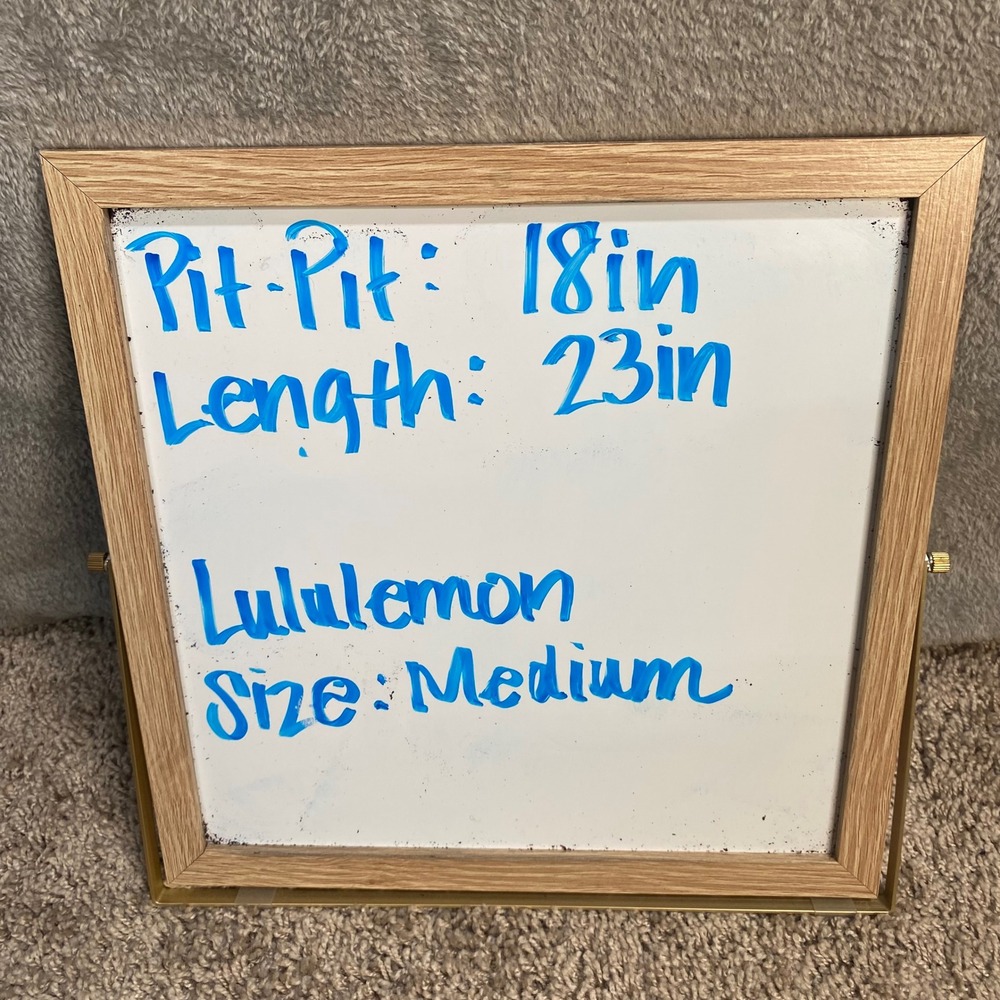 Pit-Pit: 18in
Length: 23in
Lululemon
Size: Medium